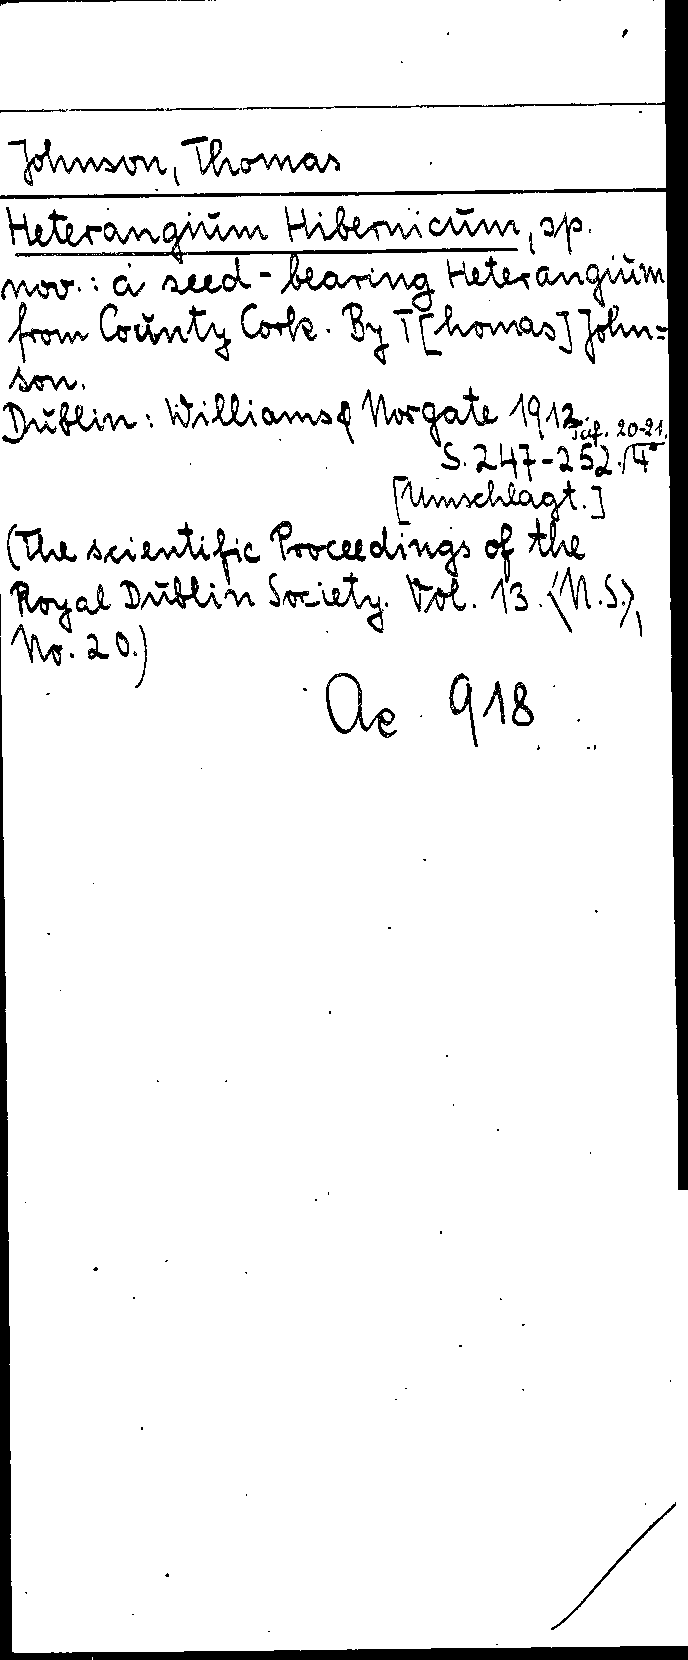 Johnson, Thomas
Heterangium Hibernicum, sp.
nov.: a seed-bearing Heterangium
from County Cork. By T[homas] John-
son.
Dublin: Williams & Norgate 1912
Taf. 20-21.
S. 247-252. 4°
[Umschlagt.]
(The scientific Proceedings of the
Royal Dublin Society. Vol. 13. <N.S.>,
No. 20.)
Ac 918